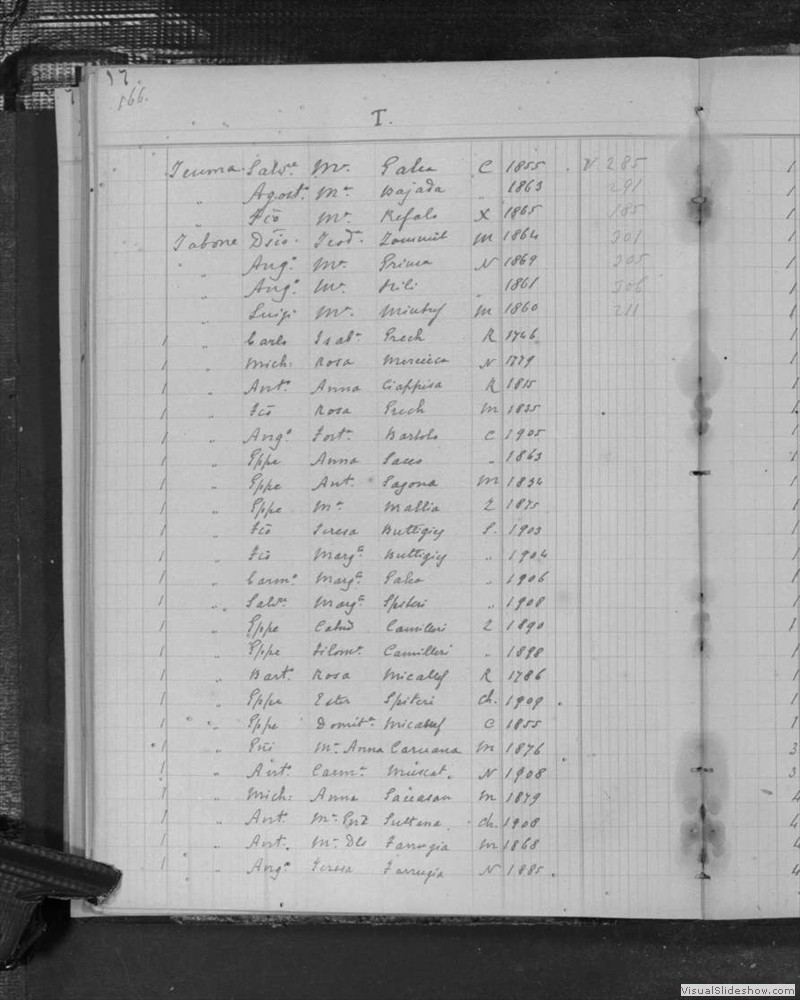 17.
566.
T.
Teuma Salv.e M.a Galea C 1855 V. 285
" Agost.o M.a Bajada " 1863 291
" Fco M.a Refalo X 1865 185
Tabone Teod. Zammit M 1864 201
" Ang.o M.a Grima N 1869 205
" Ang.o M.a Xili " 1861 206
" Luigi M.a Mintuf M 1860 211
1 " Carlo Isab.a Grech R 1746
1 " Mich. Rosa Mercieca N 1779
1 " Ant.o Anna Ciappisa R 1815
1 " Fco Rosa Grech M 1835
1 " Ang.o Fort.a Bartolo C 1905
1 " Gppe Anna Sacco " 1863
1 " Gppe Ant. Sagona M 1834
1 " Gppe M.a Mallia Z 1875
1 " Fco Teresa Buttigieg S. 1903
1 " Fco Marg.a Buttigieg " 1904
1 " Carm.o Marg.a Galea " 1906
1 " Salv.e Marg.a Spiteri " 1908
1 " Gppe Camilleri Z 1890
1 " Gppe Filom.a Camilleri " 1898
1 " Bart.o Rosa Micallef R 1786
1 " Gppe Ester Spiteri Ch. 1909
1 " Gppe Domit.a Micallef C 1855
1 " M.a Anna Caruana M 1876
1 " Ant.o Carm.a Muscat N 1908
1 " Mich. Anna M 1879
1 " Ant. M.a Sultana Ch. 1908
1 " Ant. M.a Farrugia M 1868
1 " Ang.o Teresa Farrugia N 1885
VisualSlideshow.com